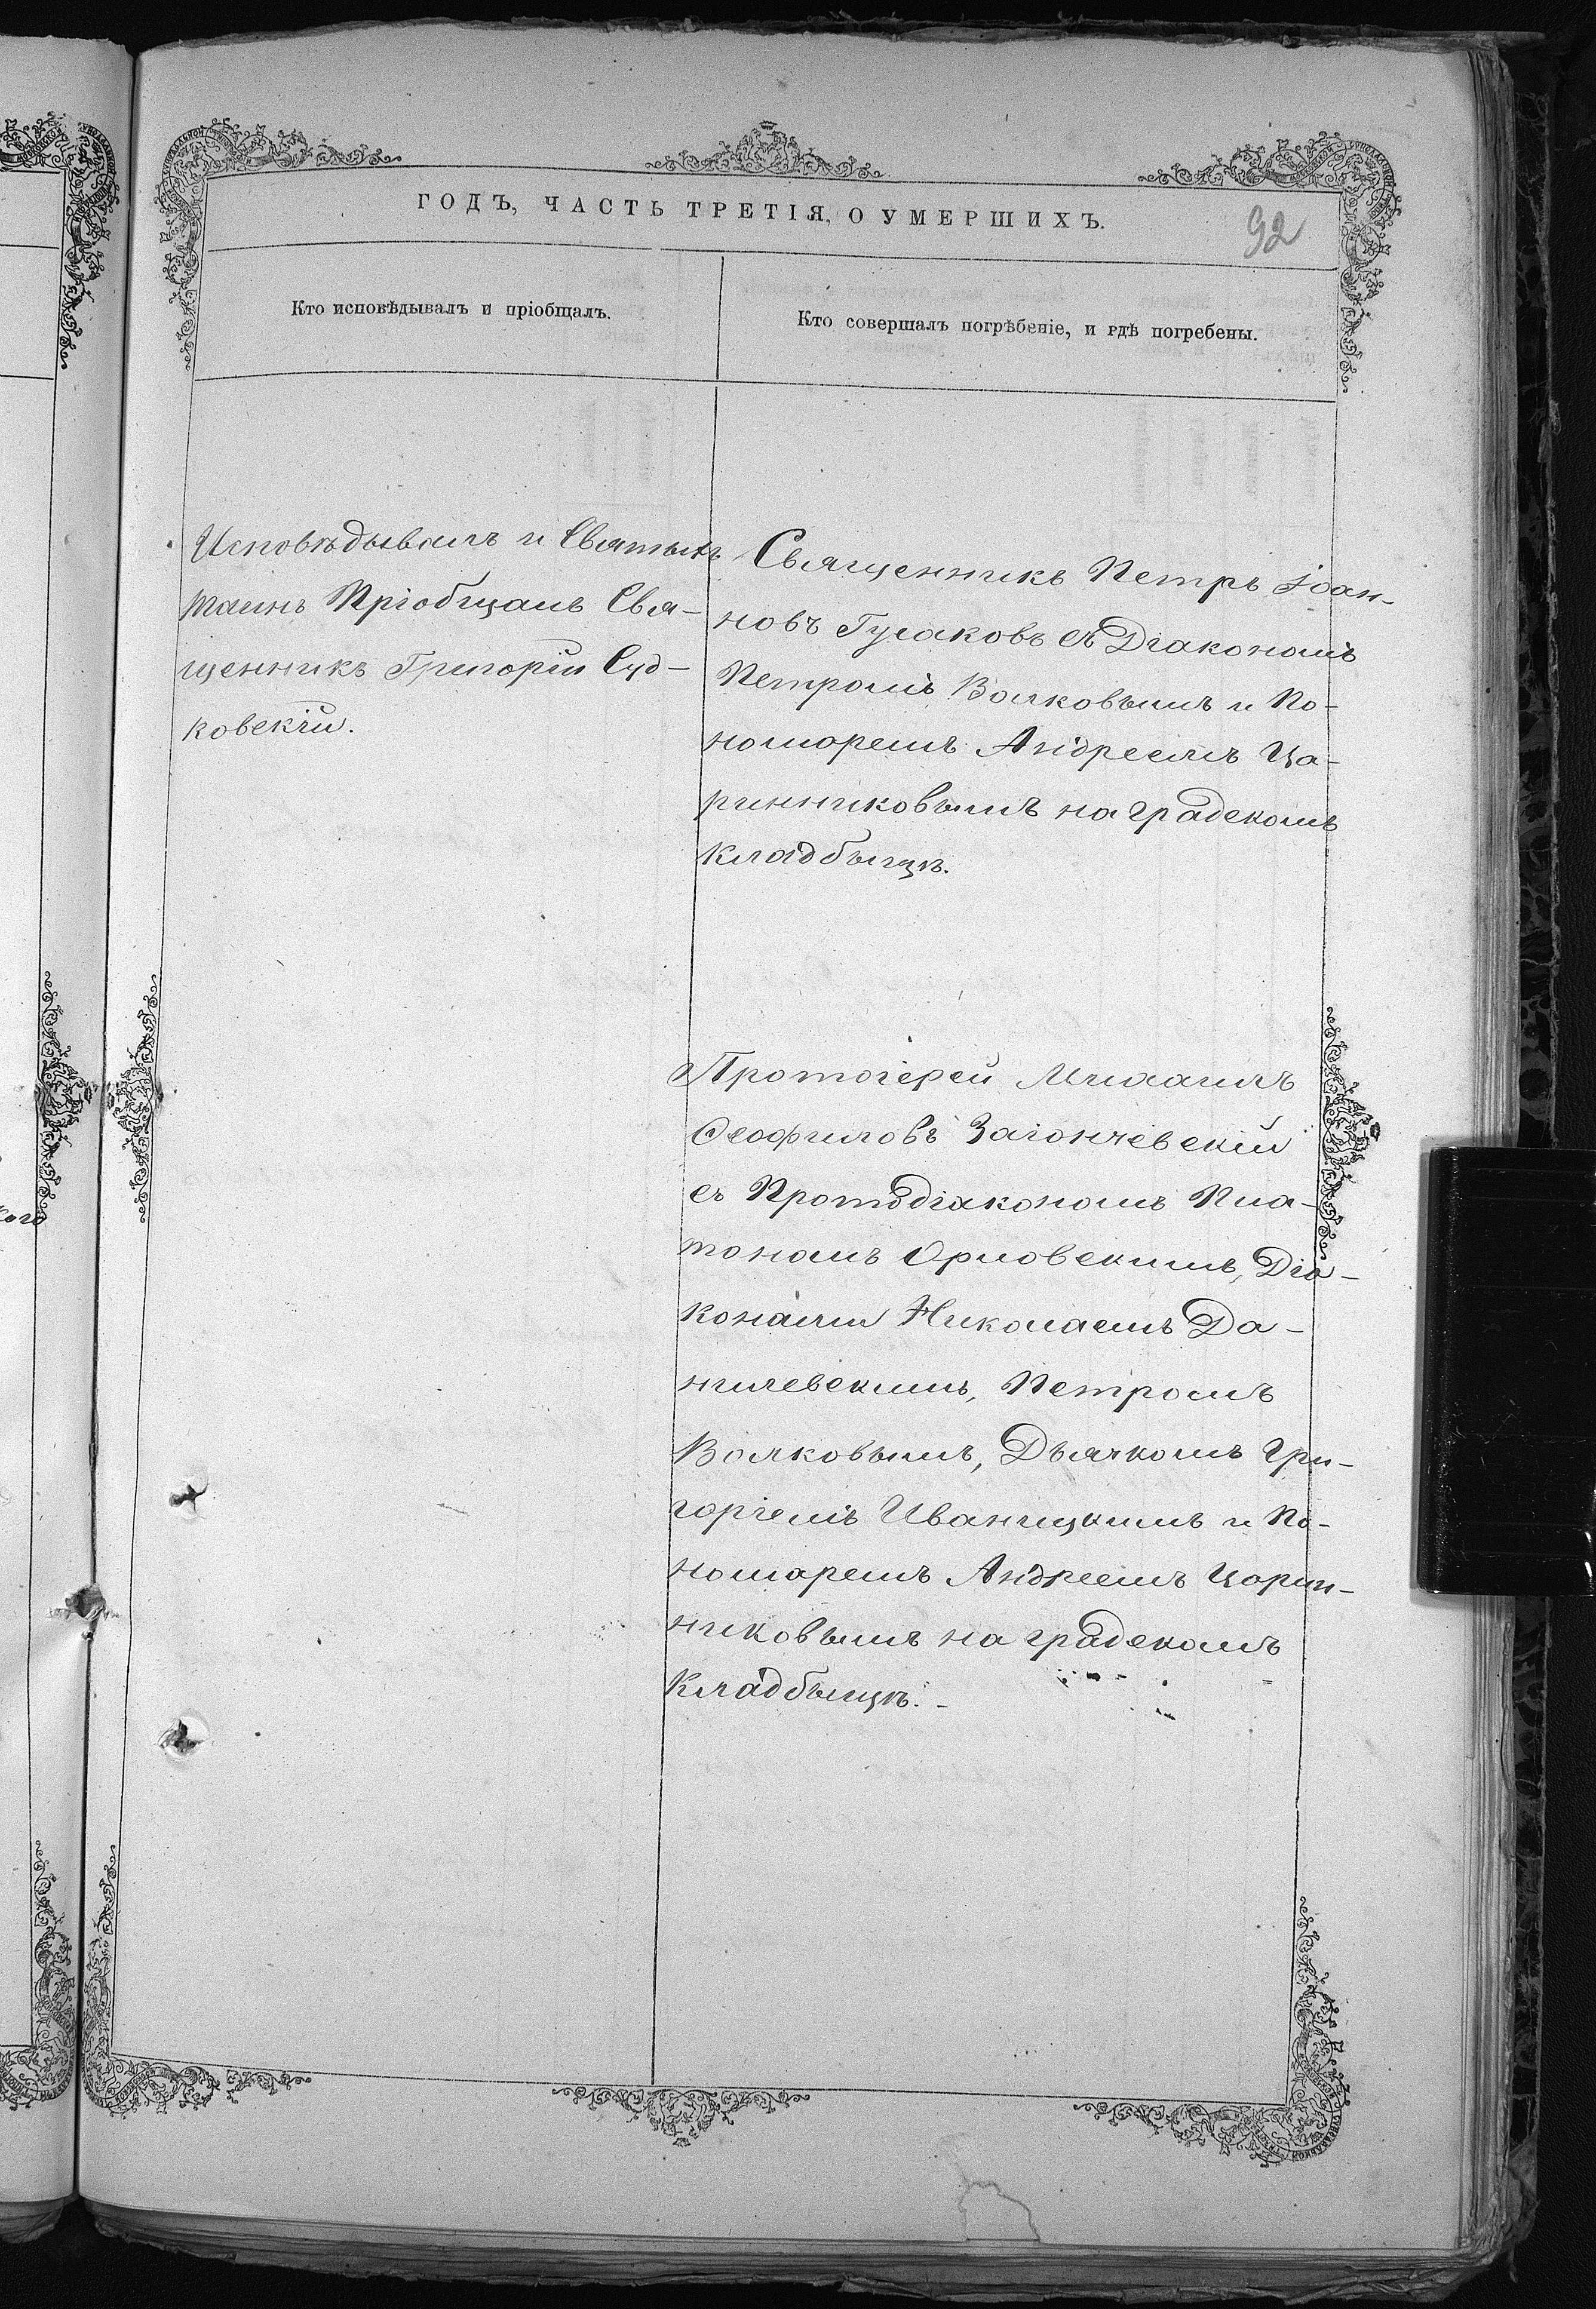 ГОДЪ, ЧАСТЬ ТРЕТІЯ, О УМЕРШИХЪ.
92
Кто исповѣдывалъ и пріобщалъ.
Кто совершалъ погрѣбеніе, и гдѣ погребены.
Исповѣдывалъ и Святыхъ
Таинъ Пріобщалъ Свя-
щенникъ Григорій Суд-
ковскій.
Священникъ Петръ Іоан-
новъ Гусаковъ съ Діакономъ
Петромъ Волковымъ и По-
номоремъ Андреемъ Ца-
ринниковымъ на градскомъ
кладбыщѣ.
Протоіерей Михаилъ
Ѳеофиловъ Загончевскій
съ Протодіакономъ Пла-
тономъ Орловскимъ, Діа-
конами Николаемъ Да-
нилевскимъ, Петромъ
Волковымъ, Дьячкомъ Гри-
горіемъ Иваницкимъ и По-
номаремъ Андреемъ Царин-
никовымъ на градскомъ
Кладбыщѣ.-